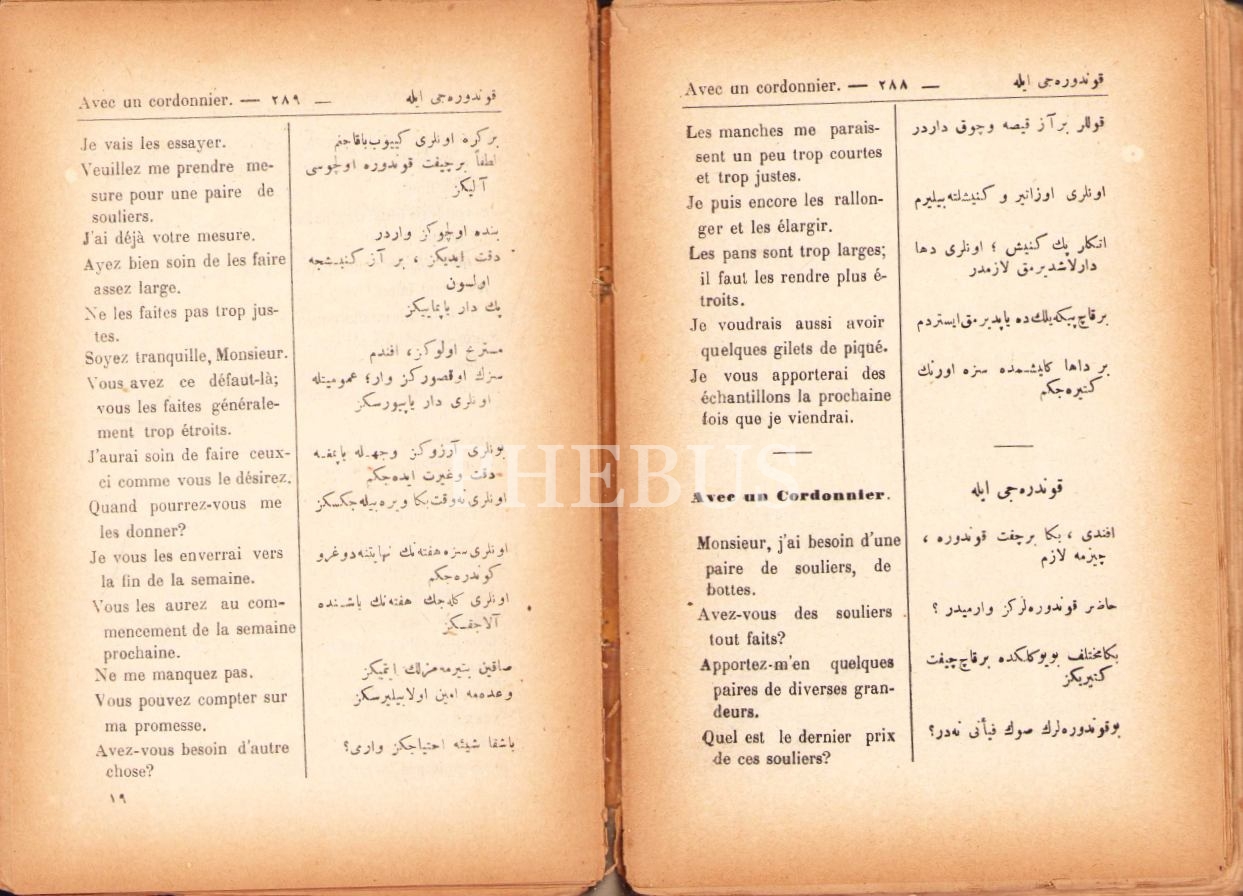 Avec un cordonnier. — ٢٨٨ — قوندوره‌جی ایله
Les manches me parais-
sent un peu trop courtes
et trop justes.
Je puis encore les rallon-
ger et les élargir.
Les pans sont trop larges;
il faut les rendre plus é-
troits.
Je voudrais aussi avoir
quelques gilets de piqué.
Je vous apporterai des
échantillons la prochaine
fois que je viendrai.
قوللر برآز قیصه وچوق داردر
اونلری اوزاتیر و کنیشلته‌بیلیرم
اتکلر پك کنیش ؛ اونلری دها
دارلاشدیرمق لازمدر
برقاچ پیکه یلك ده یاپدیرمق ایستردم
بر داها کلیشمده سزه اورنك
کتیره‌جکم
Avec un Cordonnier.
قوندره‌جی ایله
Monsieur, j'ai besoin d'une
paire de souliers, de
bottes.
Avez-vous des souliers
tout faits?
Apportez-m'en quelques
paires de diverses gran-
deurs.
Quel est le dernier prix
de ces souliers?
افندی ، بکا برچفت قوندوره ،
چیزمه لازم
حاضر قوندوره‌لرکز وارمیدر ؟
بکامختلف بویوکلکده برقاچ چیفت
کتیریکز
بوقوندوره‌لرك صوك فیأتی نه‌در؟
Avec un cordonnier. — ٢٨٩ — قوندوره‌جی ایله
Je vais les essayer.
Veuillez me prendre me-
sure pour une paire de
souliers.
J'ai déjà votre mesure.
Ayez bien soin de les faire
assez large.
Ne les faites pas trop jus-
tes.
Soyez tranquille, Monsieur.
Vous avez ce défaut-là;
vous les faites générale-
ment trop étroits.
J'aurai soin de faire ceux-
ci comme vous le désirez.
Quand pourrez-vous me
les donner?
Je vous les enverrai vers
la fin de la semaine.
Vous les aurez au com-
mencement de la semaine
prochaine.
Ne me manquez pas.
Vous pouvez compter sur
ma promesse.
Avez-vous besoin d'autre
chose?
برکره اونلری کییوب‌باقاجغم
لطفاً برچیفت قوندوره اولچوسی
آلیکز
بنده اولچوکز واردر
دقت ایدیکز ، بر آز کنیشجه
اولسون
پك دار یاپماییکز
مستریح اولوکز، افندم
سزك اوقصورکز وار؛ عمومیتله
اونلری دار یاپیورسکز
بونلری آرزوکز وجهله یاپمغه
دقت وغیرت ایده‌جکم
اونلری نه‌وقت بکا ویره بیله‌جکسکز
اونلری سزه هفته‌نك نهایتنه دوغرو
کوندره‌جکم
اونلری کله‌جك هفته‌نك باشنده
آلاجقسکز
صاقین بتیرمه‌مزلك ایتمیکز
وعدمه امین اولابیلیرسکز
باشقا شیئه احتیاجکز واری؟
١٩
PHEBUS